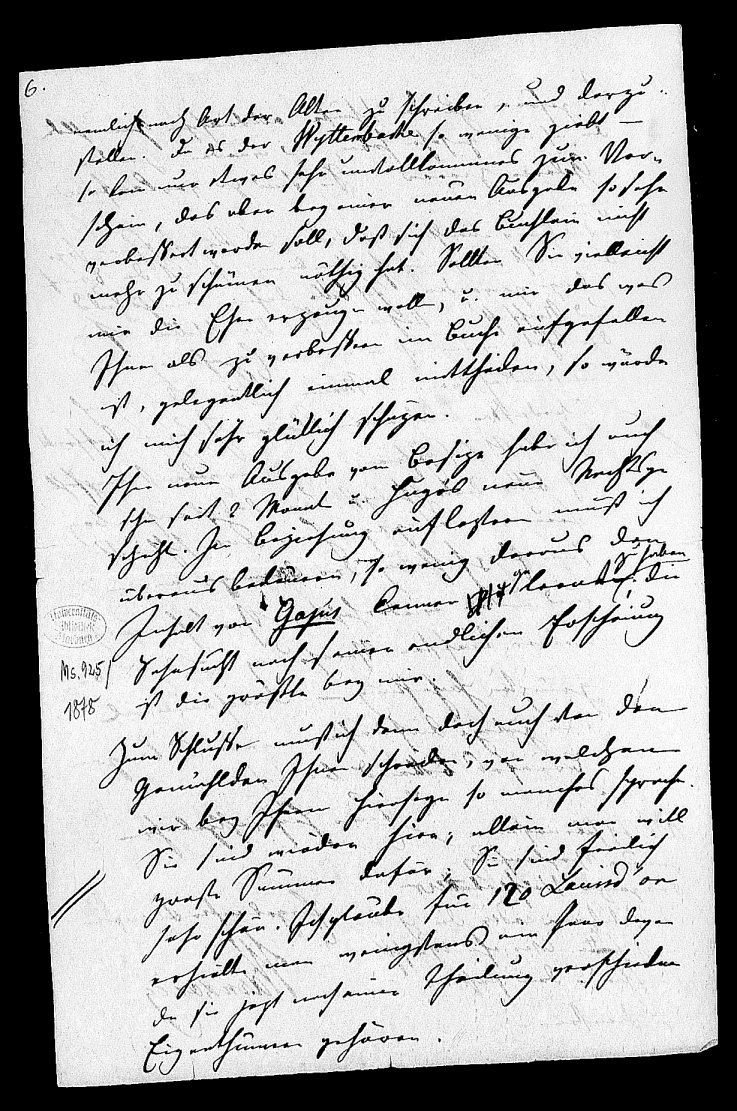 6.
nemlich nach Art der Alten zu schreiben, und darzu-
stellen. Da es der Wyttenbache so wenige giebt —
so kam nur etwas sehr unvollkommnes zum Vor-
schein, das aber bey einer neuen Ausgabe so sehr
verbessert werden soll, daß sich das Büchlein nicht
mehr zu schämen nöthig hat. Sollten Sie vielleicht
mir die Ehre erzeugen wollen, u. mir das was
Ihnen als zu verbessern im Buche aufgefallen
ist, gelegentlich einmal mittheilen, so würde
ich mich sehr glücklich schätzen.
Ihre neue Ausgabe vom Besitze habe ich auch
schon seit 2 Monat u. Hugos neue Rechtsge
schicht. In Beziehung auf letztere muß ich
überaus bedauern, so wenig daraus den
Inhalt von Gajus kennen gelernt zu haben, die
Sehnsucht nach seiner endlichen Erscheinung
ist die größte bey mir.
Zum Schlusse muß ich denn doch auch von den
Gemählden Ihnen schreiben, von welchen
wir bey Ihrem Hierseyn so manches sprachen.
Sie sind wieder hier, allein man will
große Summen dafür. Sie sind freilich
sehr schön. Ich glaube für 120 Louisd'or
erhielte man wenigstens ein Paar davon
da sie jetzt nach einer Theilung verschiedenen
Eigenthümern gehören.
Universitäts-
Bibliothek
Marburg
Ms. 925/
1878